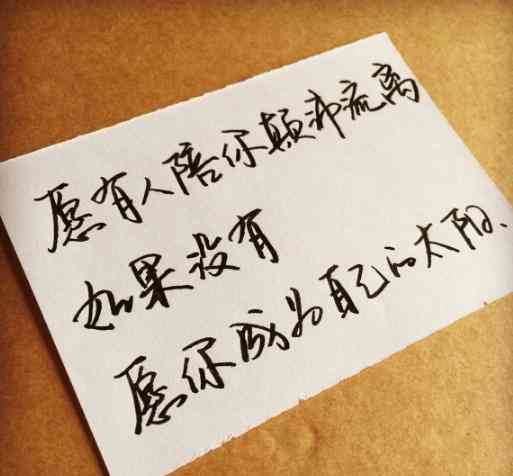 愿有人陪你颠沛流离
如果没有
愿你成为自己的太阳、